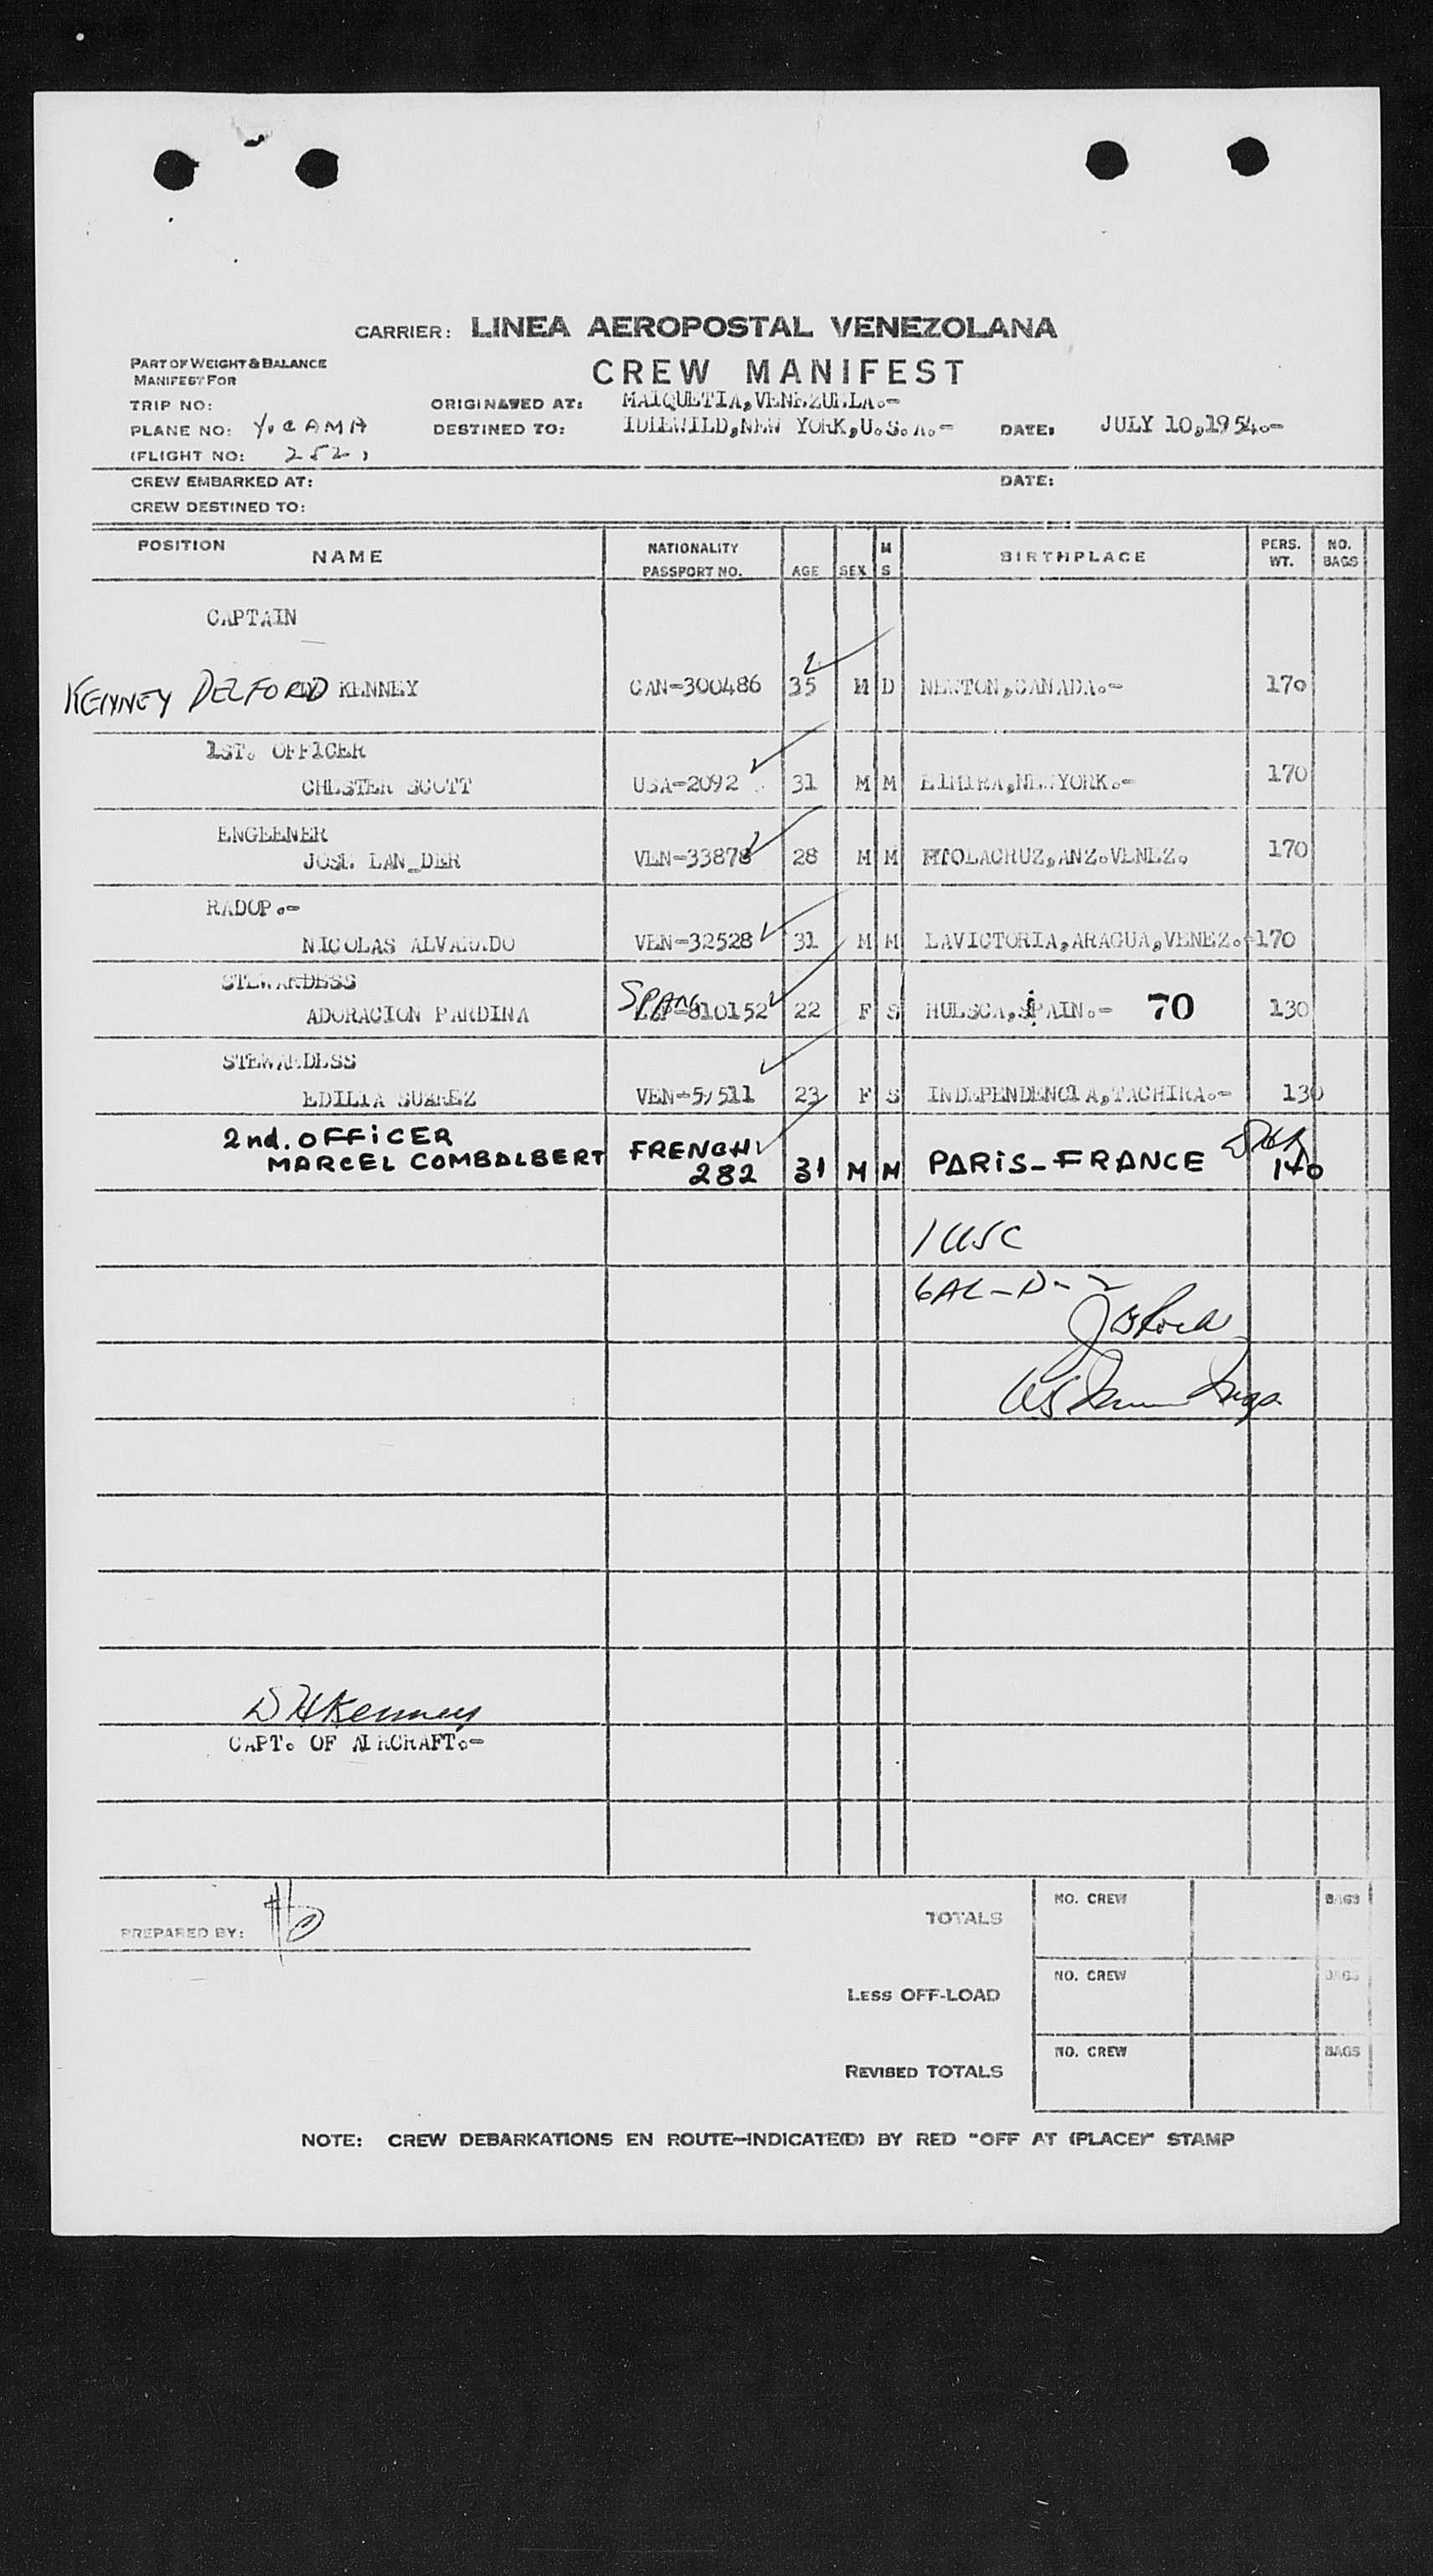 CARRIER: LINEA AEROPOSTAL VENEZOLANA
PART OF WEIGHT & BALANCE
MANIFEST FOR
CREW MANIFEST
TRIP NO: ORIGINATED AT: MAIQUETIA,VENEZUELA.-
PLANE NO: DESTINED TO: IDLEWILD,NEW YORK,U.S.A.- DATE: JULY 10,1954.-
(FLIGHT NO: 252)
CREW EMBARKED AT: DATE:
CREW DESTINED TO:
POSITION NAME NATIONALITY PASSPORT NO. AGE SEX M S BIRTHPLACE PERS. WT. NO. BAGS
CAPTAIN
KENNEY DELFORD KENNEY CAN-300486 35 M D NEWTON,CANADA.- 170
1ST. OFFICER
CHESTER SCOTT USA-2092 31 M M ELMIRA,NEWYORK.- 170
ENGEENER
JOSE LAN_DER VEN-33878 28 M M PTOLACRUZ,ANZ.VENEZ. 170
RADOP.-
NICOLAS ALVARADO VEN-32528 31 M M LAVICTORIA,ARAGUA,VENEZ.-170
STEWARDESS
ADORACION PARDINA SPAN-810152 22 F S HUESCA,SPAIN.- 70 130
STEWARDESS
EDILIA SUAREZ VEN-57511 23 F S INDEPENDENCIA,TACHIRA.- 130
2nd. OFFICER
MARCEL COMBALBERT FRENCH 282 31 M M PARIS-FRANCE 140
1 USC
6AL-D-2
D H Kenney
CAPT. OF AIRCRAFT.-
PREPARED BY:
TOTALS NO. CREW BAGS
LESS OFF-LOAD NO. CREW BAGS
REVISED TOTALS NO. CREW BAGS
NOTE: CREW DEBARKATIONS EN ROUTE-INDICATE(D) BY RED "OFF AT (PLACE)" STAMP